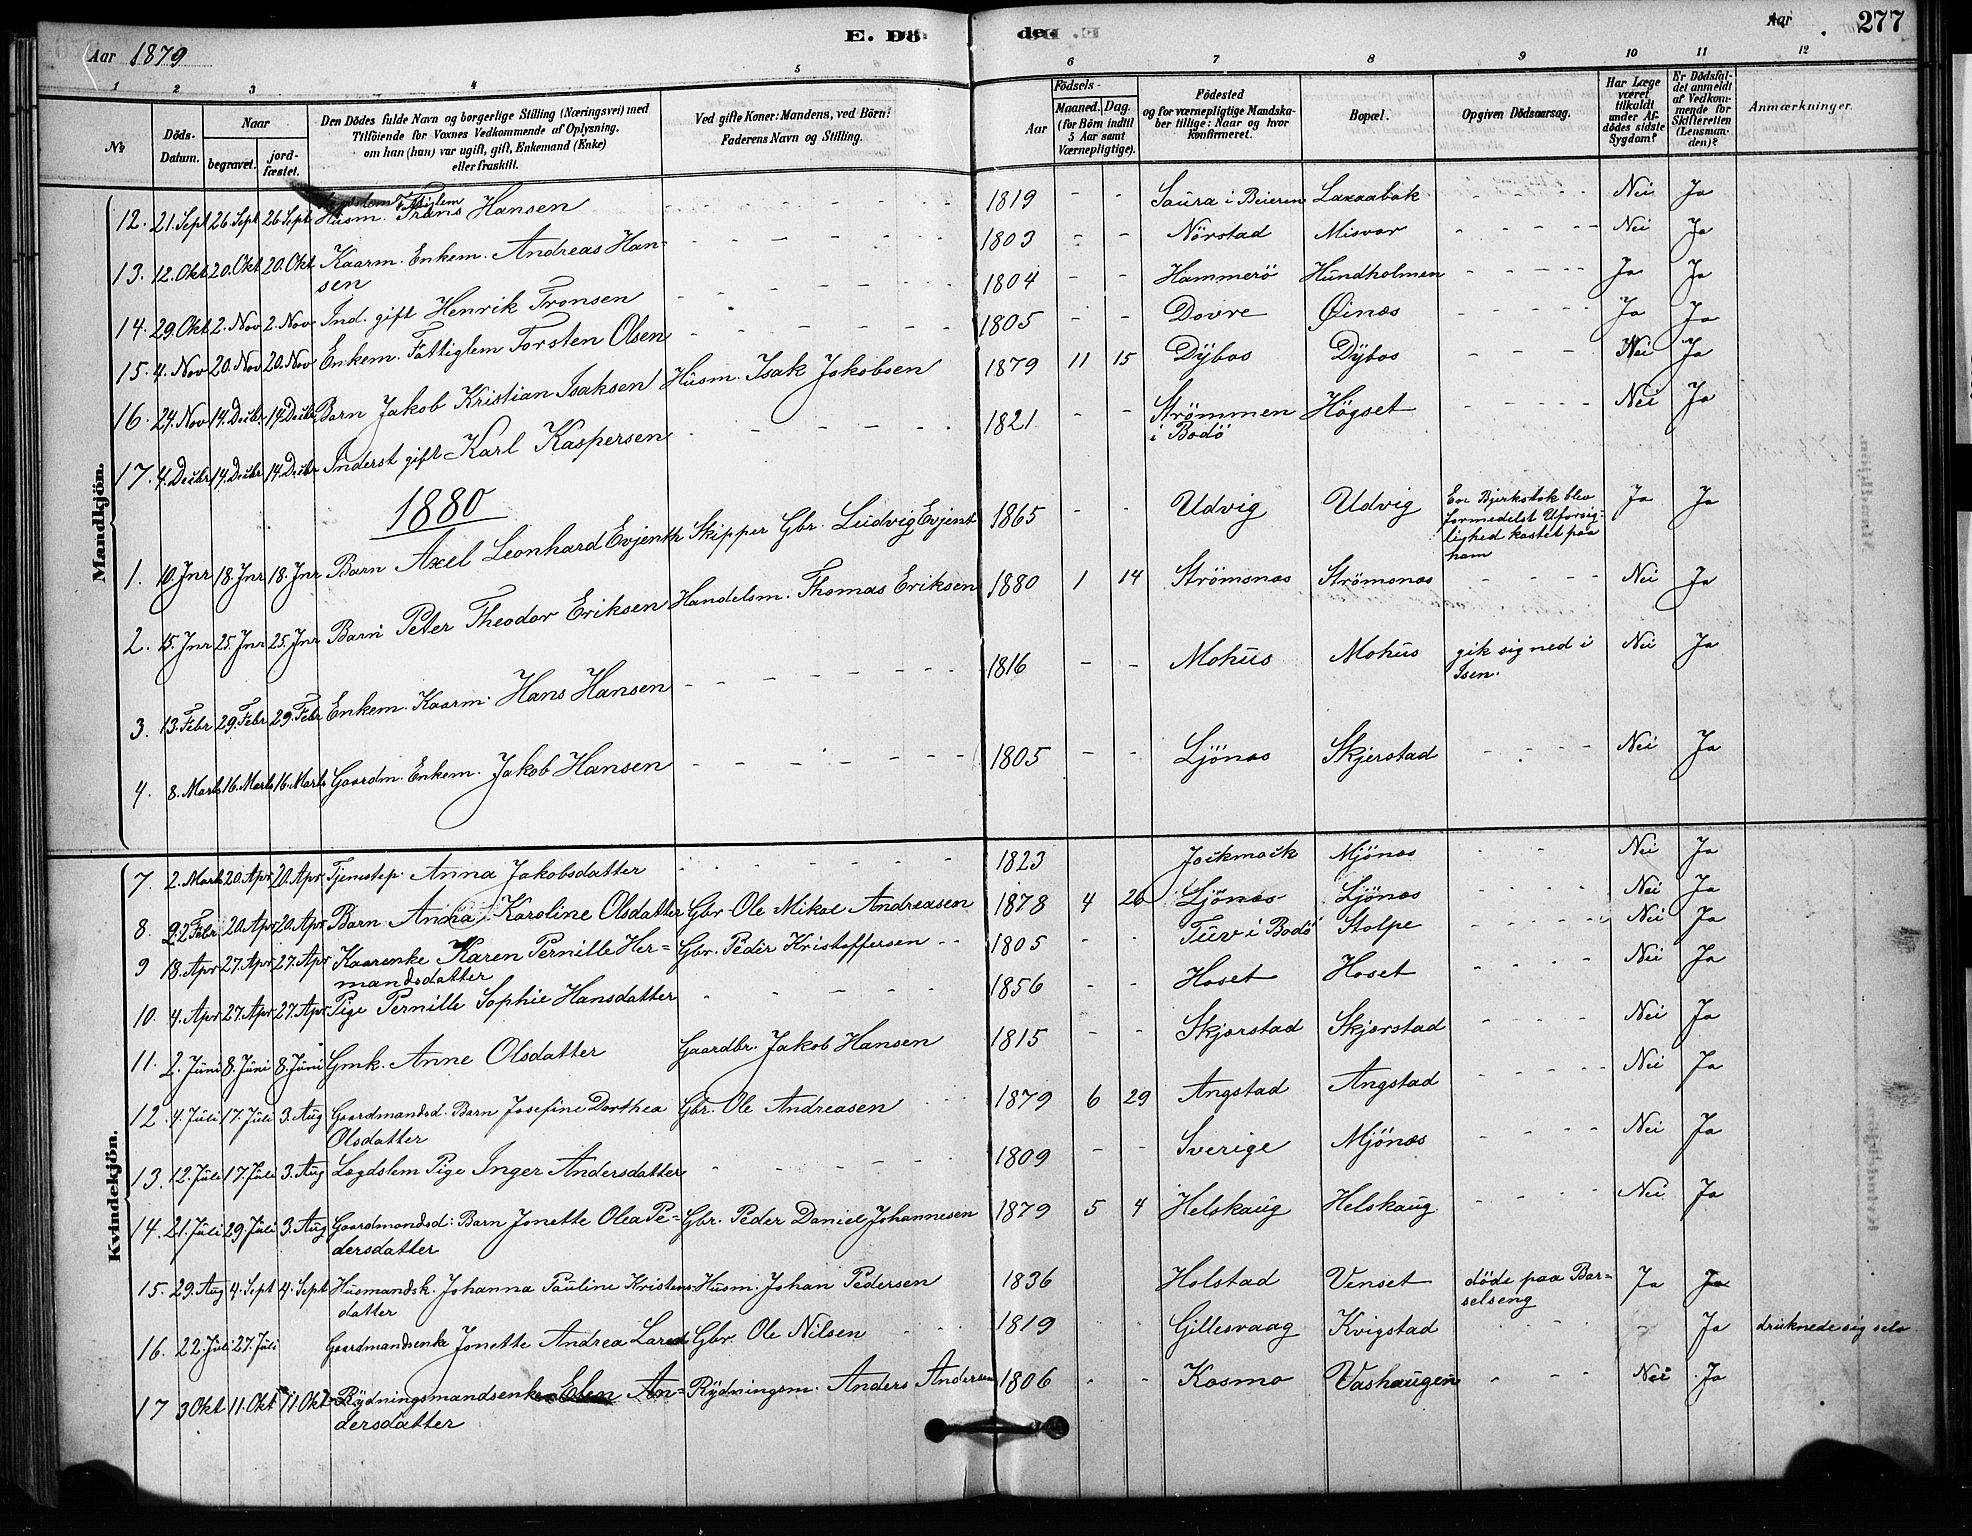 Aar 1879
E. Döde.
Aar
277
1 2 3 4 5 6 7 8 9 10 11 12
№
Döds-Datum.
Naar
begravet.
jordfæstet.
Den Dödes fulde Navn og borgerlige Stilling (Næringsvei) med
Tilföiende for Voxnes Vedkommende af Oplysning,
om han (hun) var ugift, gift, Enkemand (Enke)
eller fraskilt.
Ved gifte Koner: Mandens, ved Börn:
Faderens Navn og Stilling.
Aar
Födsels-
Maaned. Dag.
(for Börn indtil
5 Aar samt
Værnepligtige).
Födested
og for værnepligtige Mandskaber tillige: Naar og hvor
konfirmeret.
Bopæl.
Opgiven Dödsaarsag.
Har Læge
været
tilkaldt
under Afdödes sidste
Sygdom?
Er Dödsfaldet anmeldt
af Vedkommende for
Skifteretten
(Lensmanden)?
Anmærkninger.
Mandkjön.
12. 21. Sept 26. Sept 26. Sept Husm. Frans Hansen - 1819 - - Saura i Beieren Laxaabak Nei Ja
13. 12. Okt 20. Okt 20. Okt Kaarm. Enkem. Andreas Han-
sen - 1803 - - Nörstad Misvær - Nei Ja
14. 29. Okt 2. Nov 2. Nov Ind. gift Henrik Tronsen - 1804 - - Hammerö Hundholmen - Ja Ja
15. 4. Nov 20. Nov 20. Nov Enkem. Fattiglem Torsten Olsen - 1805 - - Dovre Öinæs - Ja Ja
16. 24. Nov 14. Decbr. 14. Decbr Barn Jakob Kristian Isaksen Husm. Isak Jakobsen 1879 11 15 Dybos Dybos - Nei Ja
17. 4. Decbr 14. Decbr 14. Decbr Inderst gift Karl Kaspersen - 1821 - - Strömmen
i Bodö Högset - Nei Ja
1880
1. 10. Jnr 18. Jnr 18. Jnr Barn Axel Leonhard Evjenth Skipper Gbr. Ludvig Evjenth 1865 - - Udvig Udvig En Bjerkstok blev
formedelst Uforsig-
lighed kastet paa
ham Ja Ja
2. 15. Jnr 25. Jnr 25. Jnr Barn Peter Theodor Eriksen Handelsm. Thomas Eriksen 1880 1 14 Strömsnæs Strömsnæs - Nei Ja
3. 13. Febr 29. Febr 29. Febr Enkem. Kaarm. Hans Hansen - 1816 - - Mohus Mohus gik sig ned i
Isen. Nei Ja
4. 8. Marts 16. Marts 16. Marts Gaardm. Enkem. Jakob Hansen - 1805 - - Ljönæs Skjerstad - Nei Ja
Kvindekjön.
7. 2. Marts 20. Apr 20. Apr Tjenestep. Anna Jakobsdatter - 1823 Jockmock Mjönæs - Nei Ja
8. 22 Febr 20. Apr 20. Apr Barn Andrea Karoline Olsdatter Gbr Ole Mikal Andreasen 1878 4 26 Ljönæs Ljönæs - Nei Ja
9 18. Apr 27. Apr 27. Apr Kaarenke Karen Pernille Her-
mandsdatter Gbr. Peder Kristoffersen - 1805 - - Tuv i Bodö Stolpe - Nei Ja
10. 4. Apr 27. Apr 27. Apr Pige Pernille Sophie Hansdatter - 1856 - - Hoset Hoset - Nei Ja
11. 2. Juni 8. Juni 8. Juni Gmk. Anne Olsdatter Gaardbr. Jakob Hansen 1815 - - Skjerstad Skjerstad - Nei Ja
12. 4. Juli 17. Juli 3. Aug Gaardmandsd. Barn Josefine Dorthea
Olsdatter Gbr. Ole Andreasen 1879 6 29 Angstad Angstad - Nei Ja
13. 12. Juli 17. Juli 3. Aug Lægdslem Pige Inger Andersdatter - 1809 - - Sverige Mjönæs - Nei Ja
14. 21. Juli 29. Juli 3. Aug Gaardmandsd: Barn Jonette Olea Pe-
dersdatter Gbr. Peder Daniel Johannesen 1879 5 4 Helskaug Helskaug - Nei Ja
15. 29. Aug 4. Sept 4. Sept Husmandsk. Johanna Pauline Kristens-
datter Husm. Johan Pedersen 1836 Holstad Venset döde paa Bar-
selseng Ja Ja
16. 22 Juli 27. Juli Gaardmandsenke Jonette Andrea Gbr. Ole Nilsen 1819 Gillesvaag Kvigstad - Ja druknede sig selv
17 3 Okt 11. Okt 11. Okt Rydningsmandsenke Elen An-
dersdatter Rydningsm. Anders Andersen 1806 - - Kosmo Vashaugen - Nei Ja